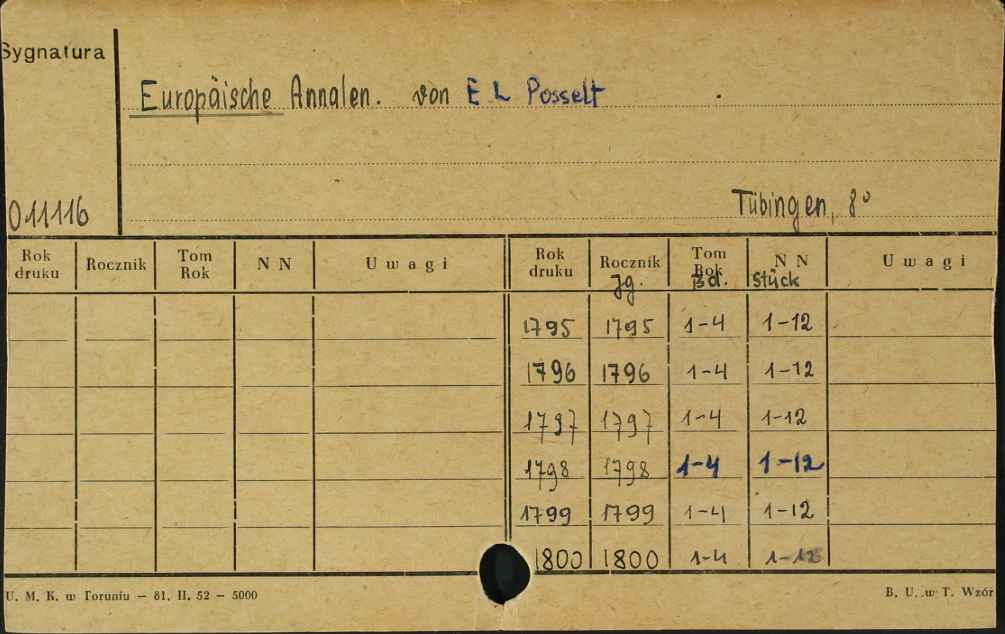 Sygnatura
Europäische Annalen. von E L Posselt
Tübingen, 8°
011116
Rok druku Rocznik Tom Rok N N Uwagi Rok druku Rocznik Jg. Tom Rok Bd. N N Stück Uwagi
1795 1795 1-4 1-12
1796 1796 1-4 1-12
1797 1797 1-4 1-12
1798 1798 1-4 1-12
1799 1799 1-4 1-12
1800 1800 1-4 1-12
U. M. K. w Toruniu — 81. II. 52 — 5000 B. U. w T. Wzór